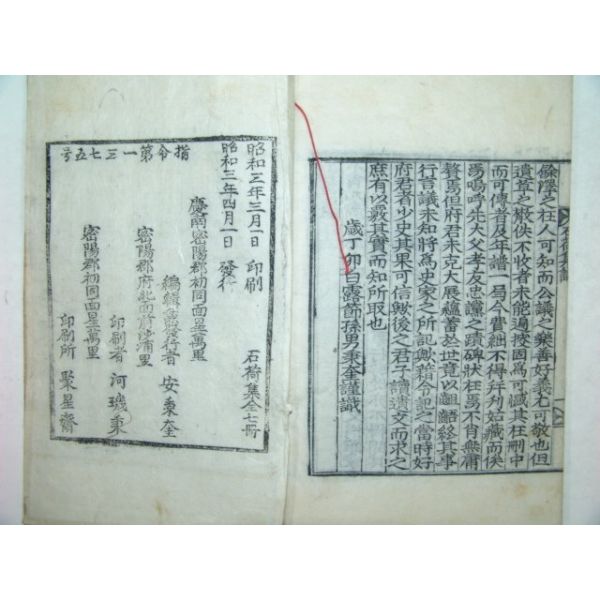 儉陸之枉人可知而公議之樂善好義尤可敬也但
遺章之散佚不收者未能遍按因爲可慽其枉刪中
而可傳者及年譜一局今費絀不得幷列姑藏而俟
焉嗚呼先大父孝友忠謙之蹟碑狀枉焉不肖無庸
贅焉但府君未克大展蘊蓄於世竟以齟齬終其事
行言議未知將爲史家之所記歟藉令記之當時好
府君者少史其果可信歟後之君子讀遺文而求之
庶有以覈其實而知所取也
歲丁卯白露節孫男秉奎謹識
指令第一三七五号
昭和三年三月一日 印刷
昭和三年四月一日 發行
石荷集全七冊
慶南密陽郡初同面星萬里
編輯兼發行者 安秉奎
密陽郡府北面前沙浦里
印刷者 河璣東
密陽郡初同面星萬里
印刷所 聚星齋